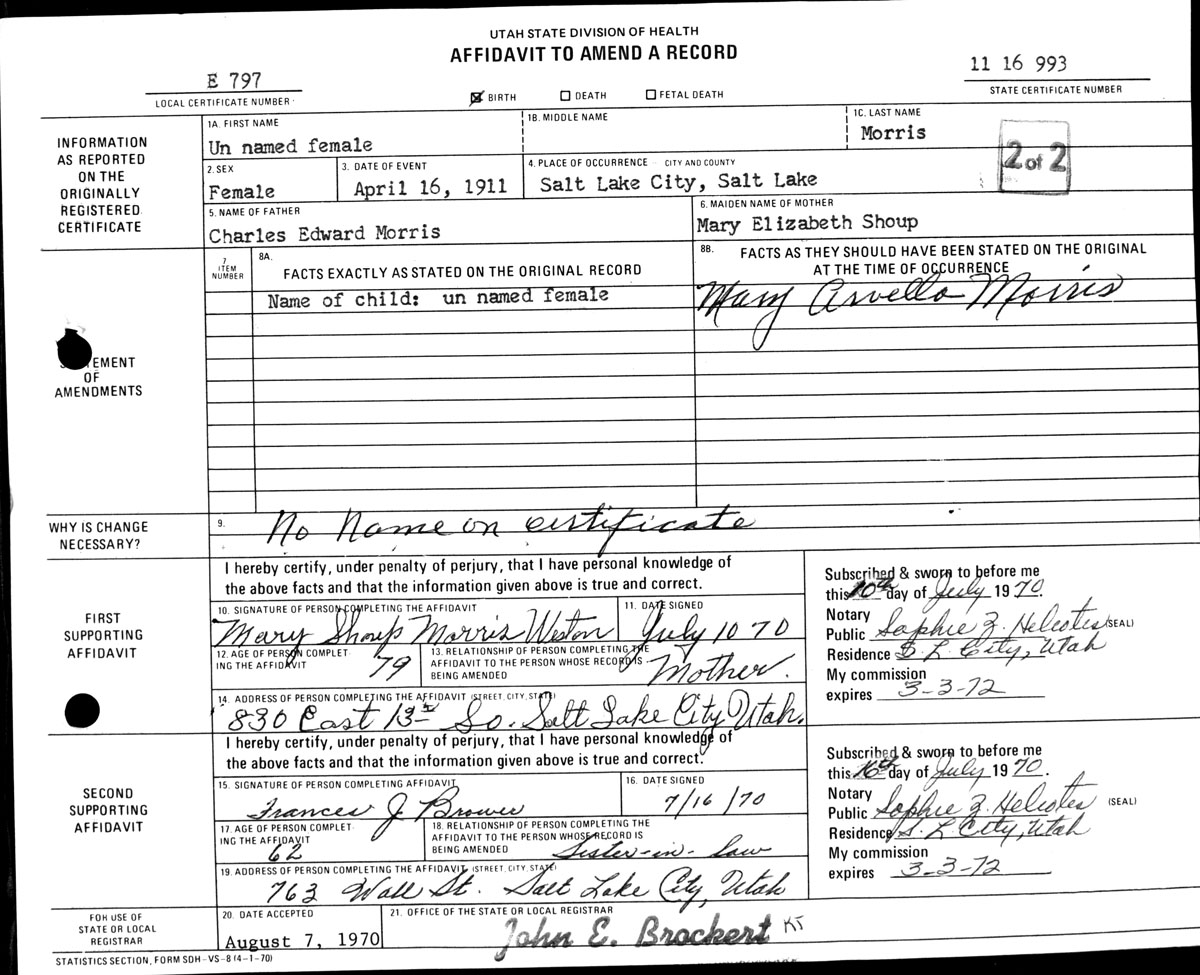 UTAH STATE DIVISION OF HEALTH
AFFIDAVIT TO AMEND A RECORD
E 797
LOCAL CERTIFICATE NUMBER
BIRTH DEATH FETAL DEATH
11 16 993
STATE CERTIFICATE NUMBER
INFORMATION
AS REPORTED
ON THE
ORIGINALLY
REGISTERED
CERTIFICATE
1A. FIRST NAME
Un named female
1B. MIDDLE NAME
1C. LAST NAME
Morris
2 of 2
2. SEX
Female
3. DATE OF EVENT
April 16, 1911
4. PLACE OF OCCURRENCE - CITY AND COUNTY
Salt Lake City, Salt Lake
5. NAME OF FATHER
Charles Edward Morris
6. MAIDEN NAME OF MOTHER
Mary Elizabeth Shoup
STATEMENT
OF
AMENDMENTS
7
ITEM
NUMBER
8A.
FACTS EXACTLY AS STATED ON THE ORIGINAL RECORD
8B. FACTS AS THEY SHOULD HAVE BEEN STATED ON THE ORIGINAL
AT THE TIME OF OCCURRENCE
Name of child: un named female
Mary Arvella Morris
WHY IS CHANGE
NECESSARY?
9. No Name on certificate
FIRST
SUPPORTING
AFFIDAVIT
I hereby certify, under penalty of perjury, that I have personal knowledge of
the above facts and that the information given above is true and correct.
10. SIGNATURE OF PERSON COMPLETING THE AFFIDAVIT
Mary Shoup Morris Weston
11. DATE SIGNED
July 10 70
12. AGE OF PERSON COMPLET
ING THE AFFIDAVIT
79
13. RELATIONSHIP OF PERSON COMPLETING THE
AFFIDAVIT TO THE PERSON WHOSE RECORD IS
BEING AMENDED
Mother.
14. ADDRESS OF PERSON COMPLETING THE AFFIDAVIT (STREET, CITY, STATE)
830 East 13 So. Salt Lake City, Utah.
Subscribed & sworn to before me
this 10th day of July 1970.
Notary
Public Sophie Z. Heliotes (SEAL)
Residence S. L City, Utah
My commission
expires 3-3-72
SECOND
SUPPORTING
AFFIDAVIT
I hereby certify, under penalty of perjury, that I have personal knowledge of
the above facts and that the information given above is true and correct.
15. SIGNATURE OF PERSON COMPLETING AFFIDAVIT
Frances J. Brower
16. DATE SIGNED
7/16/70
17. AGE OF PERSON COMPLET
ING THE AFFIDAVIT
62
18. RELATIONSHIP OF PERSON COMPLETING THE
AFFIDAVIT TO THE PERSON WHOSE RECORD IS
BEING AMENDED
Sister-in-law
19. ADDRESS OF PERSON COMPLETING THE AFFIDAVIT (STREET, CITY, STATE)
763 Wall St. Salt Lake City, Utah
Subscribed & sworn to before me
this 16th day of July 1970.
Notary
Public Sophie Z. Heliotes (SEAL)
Residence S. L City, Utah
My commission
expires 3-3-72
FOR USE OF
STATE OR LOCAL
REGISTRAR
20. DATE ACCEPTED
August 7, 1970
21. OFFICE OF THE STATE OR LOCAL REGISTRAR
John E. Brockert KJ
STATISTICS SECTION, FORM SDH-VS-8 (4-1-70)